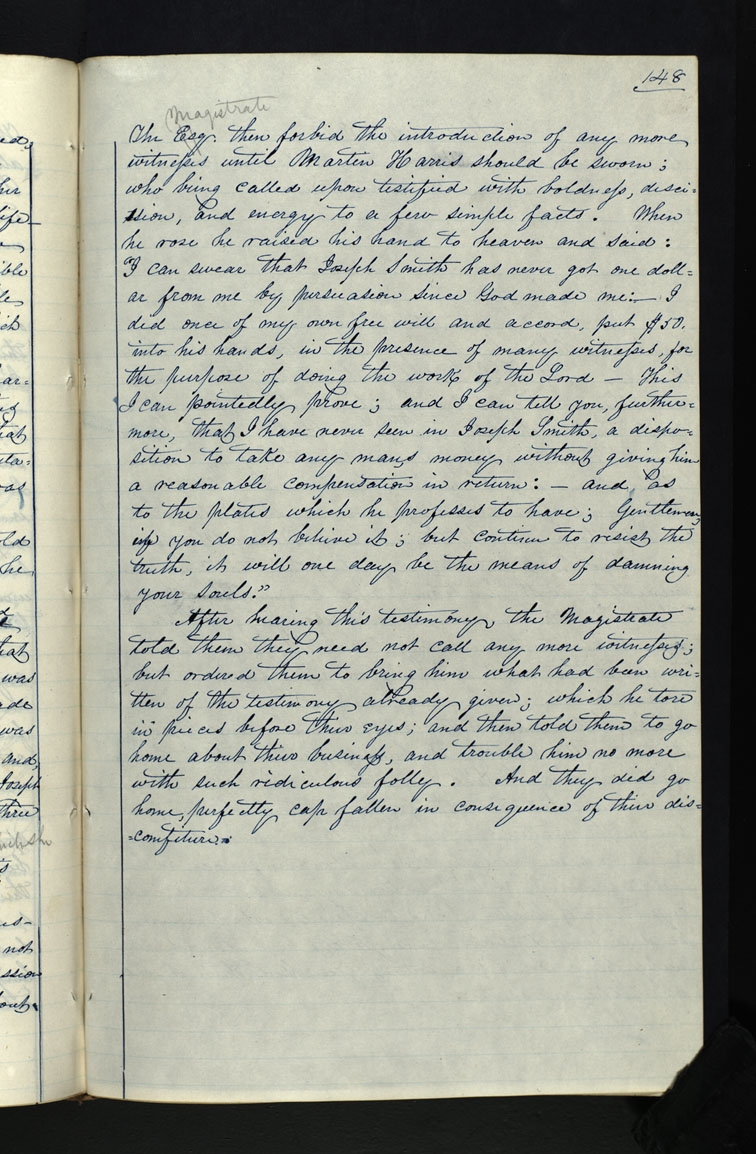 148
Magistrate
The Esq. then forbid the introduction of any more
witnesses until Martin Harris should be sworn;
who being called upon testified with boldness, desci=
sion, and energy to a few simple facts. When
he rose he raised his hand to heaven and said:
"I can swear that Joseph Smith has never got one doll=
ar from me by persuasion since God made me:— I
did once of my own free will and accord, put $50.
into his hands, in the presence of many witnesses, for
the purpose of doing the work of the Lord — This
I can pointedly prove; and I can tell you, further=
more, that I have never seen in Joseph Smith, a dispo=
sition to take any mans money without giving him
a reasonable compensation in return: — and as
to the plates which he professes to have; Gentlemen,
if you do not believe it; but continue to resist the
truth, it will one day be the means of damning
your souls."
After hearing this testimony, the Magistrate
told them they need not call any more witnesses;
but ordered them to bring him what had been wri=
tten of the testimony already given; which he tore
in pieces before their eyes; and then told them to go
home about their business, and trouble him no more
with such ridiculous folly. And they did go
home, perfectly cap fallen in consequence of their dis=
=comfiture.
ible
ar=
hat
was
old
he
hat
was
ade
was
and,
Joseph
three
not
ssion